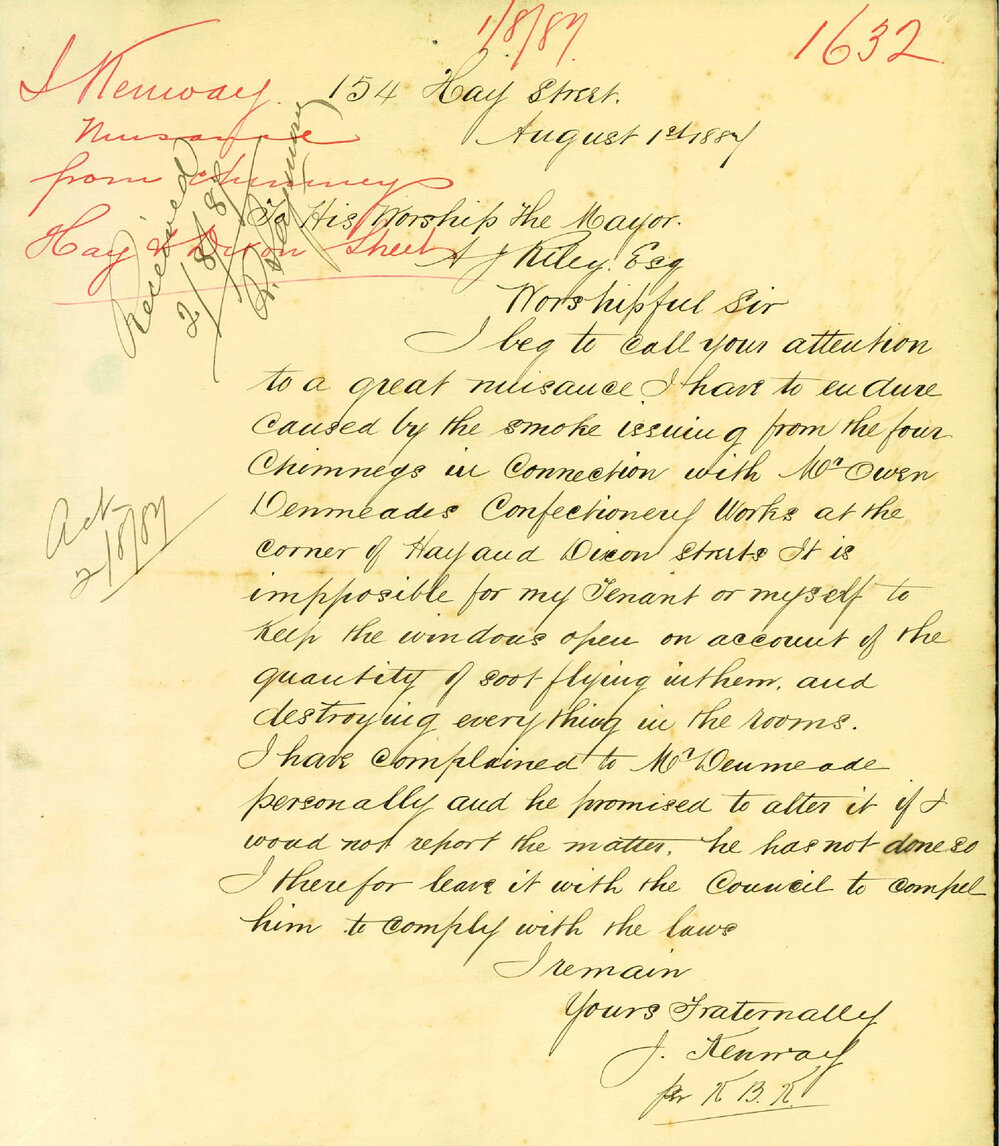 1/8/87
1632
J Kenway.
Nuisance
from Chimneys
Hay & Dixon Street
Received
2/8/87
154 Hay Street.
August 1st 1887
To His Worship the Mayor.
A J Riley. Esq
Worshipful Sir
I beg to call your attention
to a great nuisance I have to endure
caused by the smoke issuing from the four
Chimneys in Connection with Mr Owen
Denmeades Confectionery Works at the
corner of Hay and Dixon streets It is
impposible for my Tenant or myself to
keep the windows open on account of the
quantity of soot flying in them. and
destroying every thing in the rooms.
I have complained to Mr Denmeade
personally and he promised to alter it if I
woud not report the matter. he has not done so
I therefor leave it with the Council to compel
him to comply with the laws
I remain
Yours Fraternally
J. Kenway
per K B. K.
Act
2/8/87